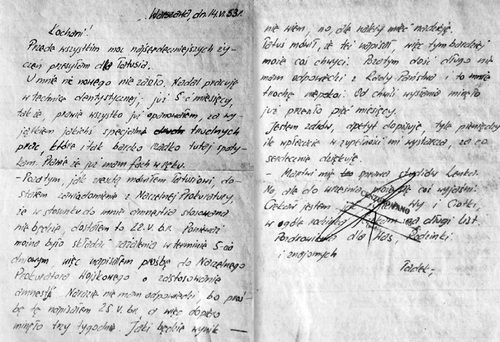 Warszawa, dn. 14.VI.53 r.
Kochani!
Przede wszystkim moc najserdeczniejszych ży-
czeń przesyłam dla Tatusia.
U mnie nic nowego nie zaszło. Nadal pracuję
w technice dentystycznej, już 5-ć miesięcy,
tak że, prawie wszystko już opanowałem, za wy-
jątkiem jakichś specjalnie trudnych
prac, które i tak bardzo rzadko tutaj spoty-
kam. Prawie że już mam fach w ręku.
- Pozatym, jak zresztą mówiłem Tatusiowi, do-
stałem zawiadomienie z Naczelnej Prokuratury,
że w stosunku do mnie amnestia stosowana
nie będzie, dostałem to 22.V. br. Ponieważ
można było składać zażalenie w terminie 5-cio
dniowym więc napisałem prośbę do Naczelnego
Prokuratora Wojskowego o zastosowanie
amnestii. Narazie nie mam odpowiedzi, bo proś
bę tę napisałem 25.V. br. a więc dopiero
minęło trzy tygodnie. Jaki będzie wynik —
nie wiem, no, ale należy mieć nadzieję.
Tatuś mówił, że też napisał, więc tym bardziej
może coś chwyci. Pozatym dość długo nie
mam odpowiedzi z Rady Państwa i to mnie
trochę niepokoi. Od chwili wysłania minęło
już przeszło pięć miesięcy.
Jestem zdrów, apetyt dopisuje, tyle pieniędzy
ile wpłacicie w zupełności mi wystarcza, za co
serdecznie dziękuję.
- Martwi mię sprawa Lenka.
No, ale do września może się coś wyjaśni.
Ciekaw jestem i Ciotki,
w ogóle na długi list.
Pozdrowienia dla Was, Rodzinki
i znajomych